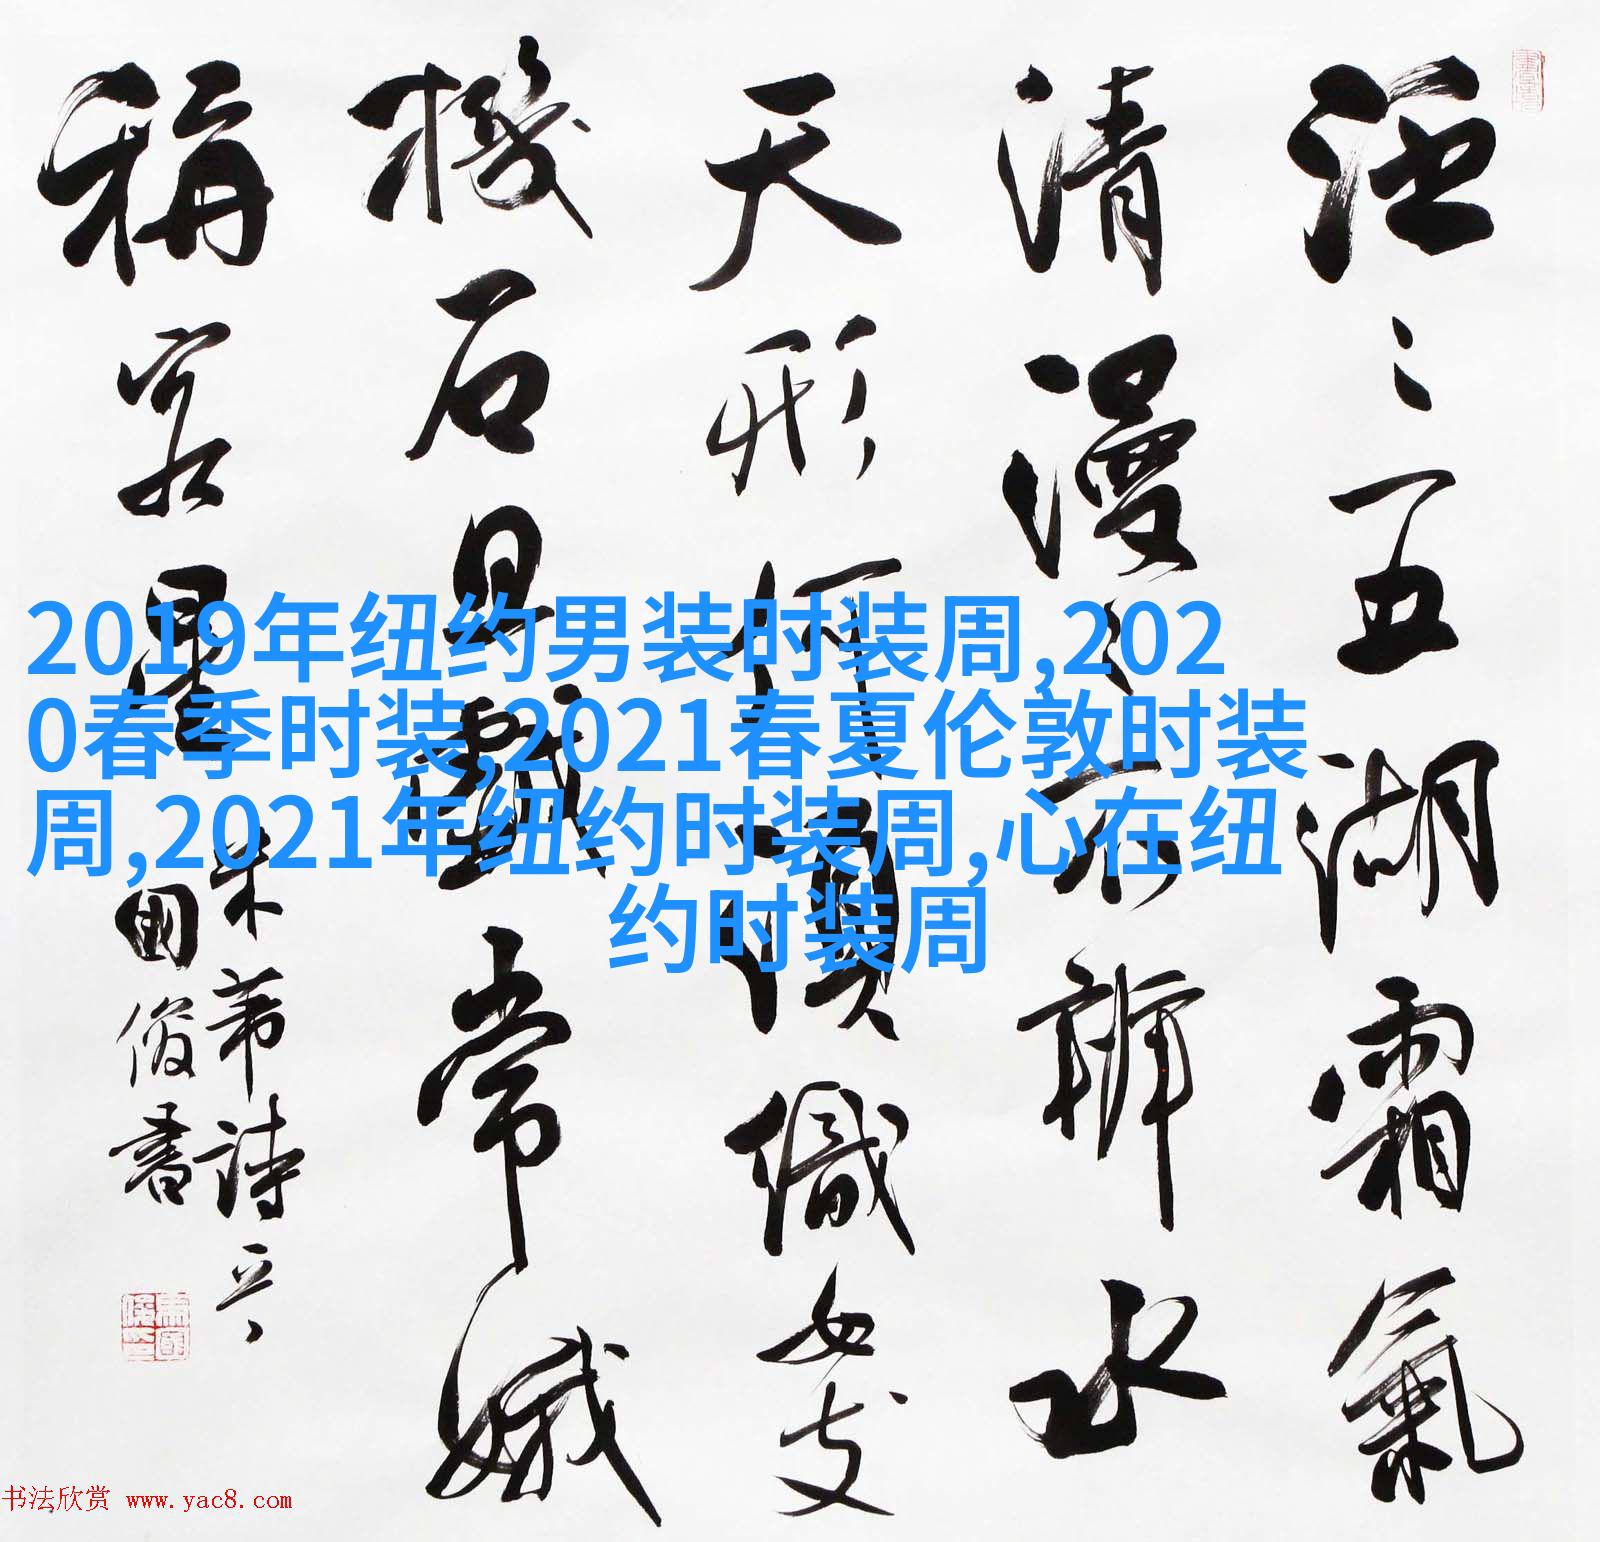 泛〻五湖霜氣
清漫〻不辨水
天形何須織女支
機石且戲常娥
稱客星
米芾詩
國俊書
2019年纽约男装时装周,202
0春季时装,2021春夏伦敦时装
周,2021年纽约时装周,心在纽
约时装周
书法欣赏 www.yac8.com